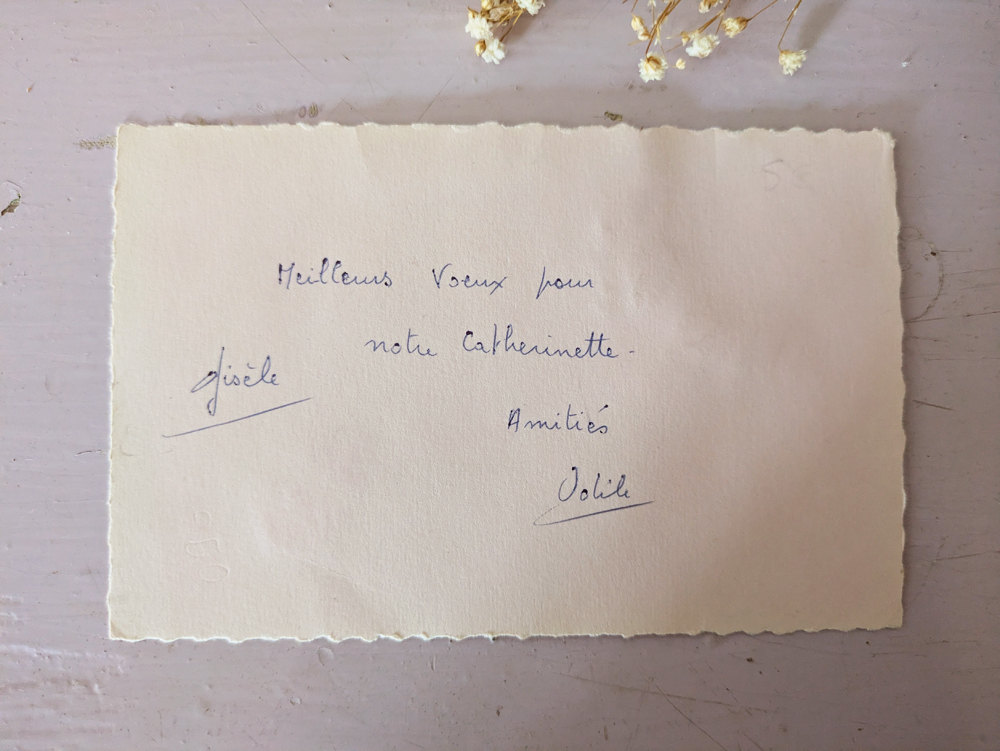 Meilleurs Voeux pour
notre Catherinette -
Gisèle
Amitiés
Odile
5